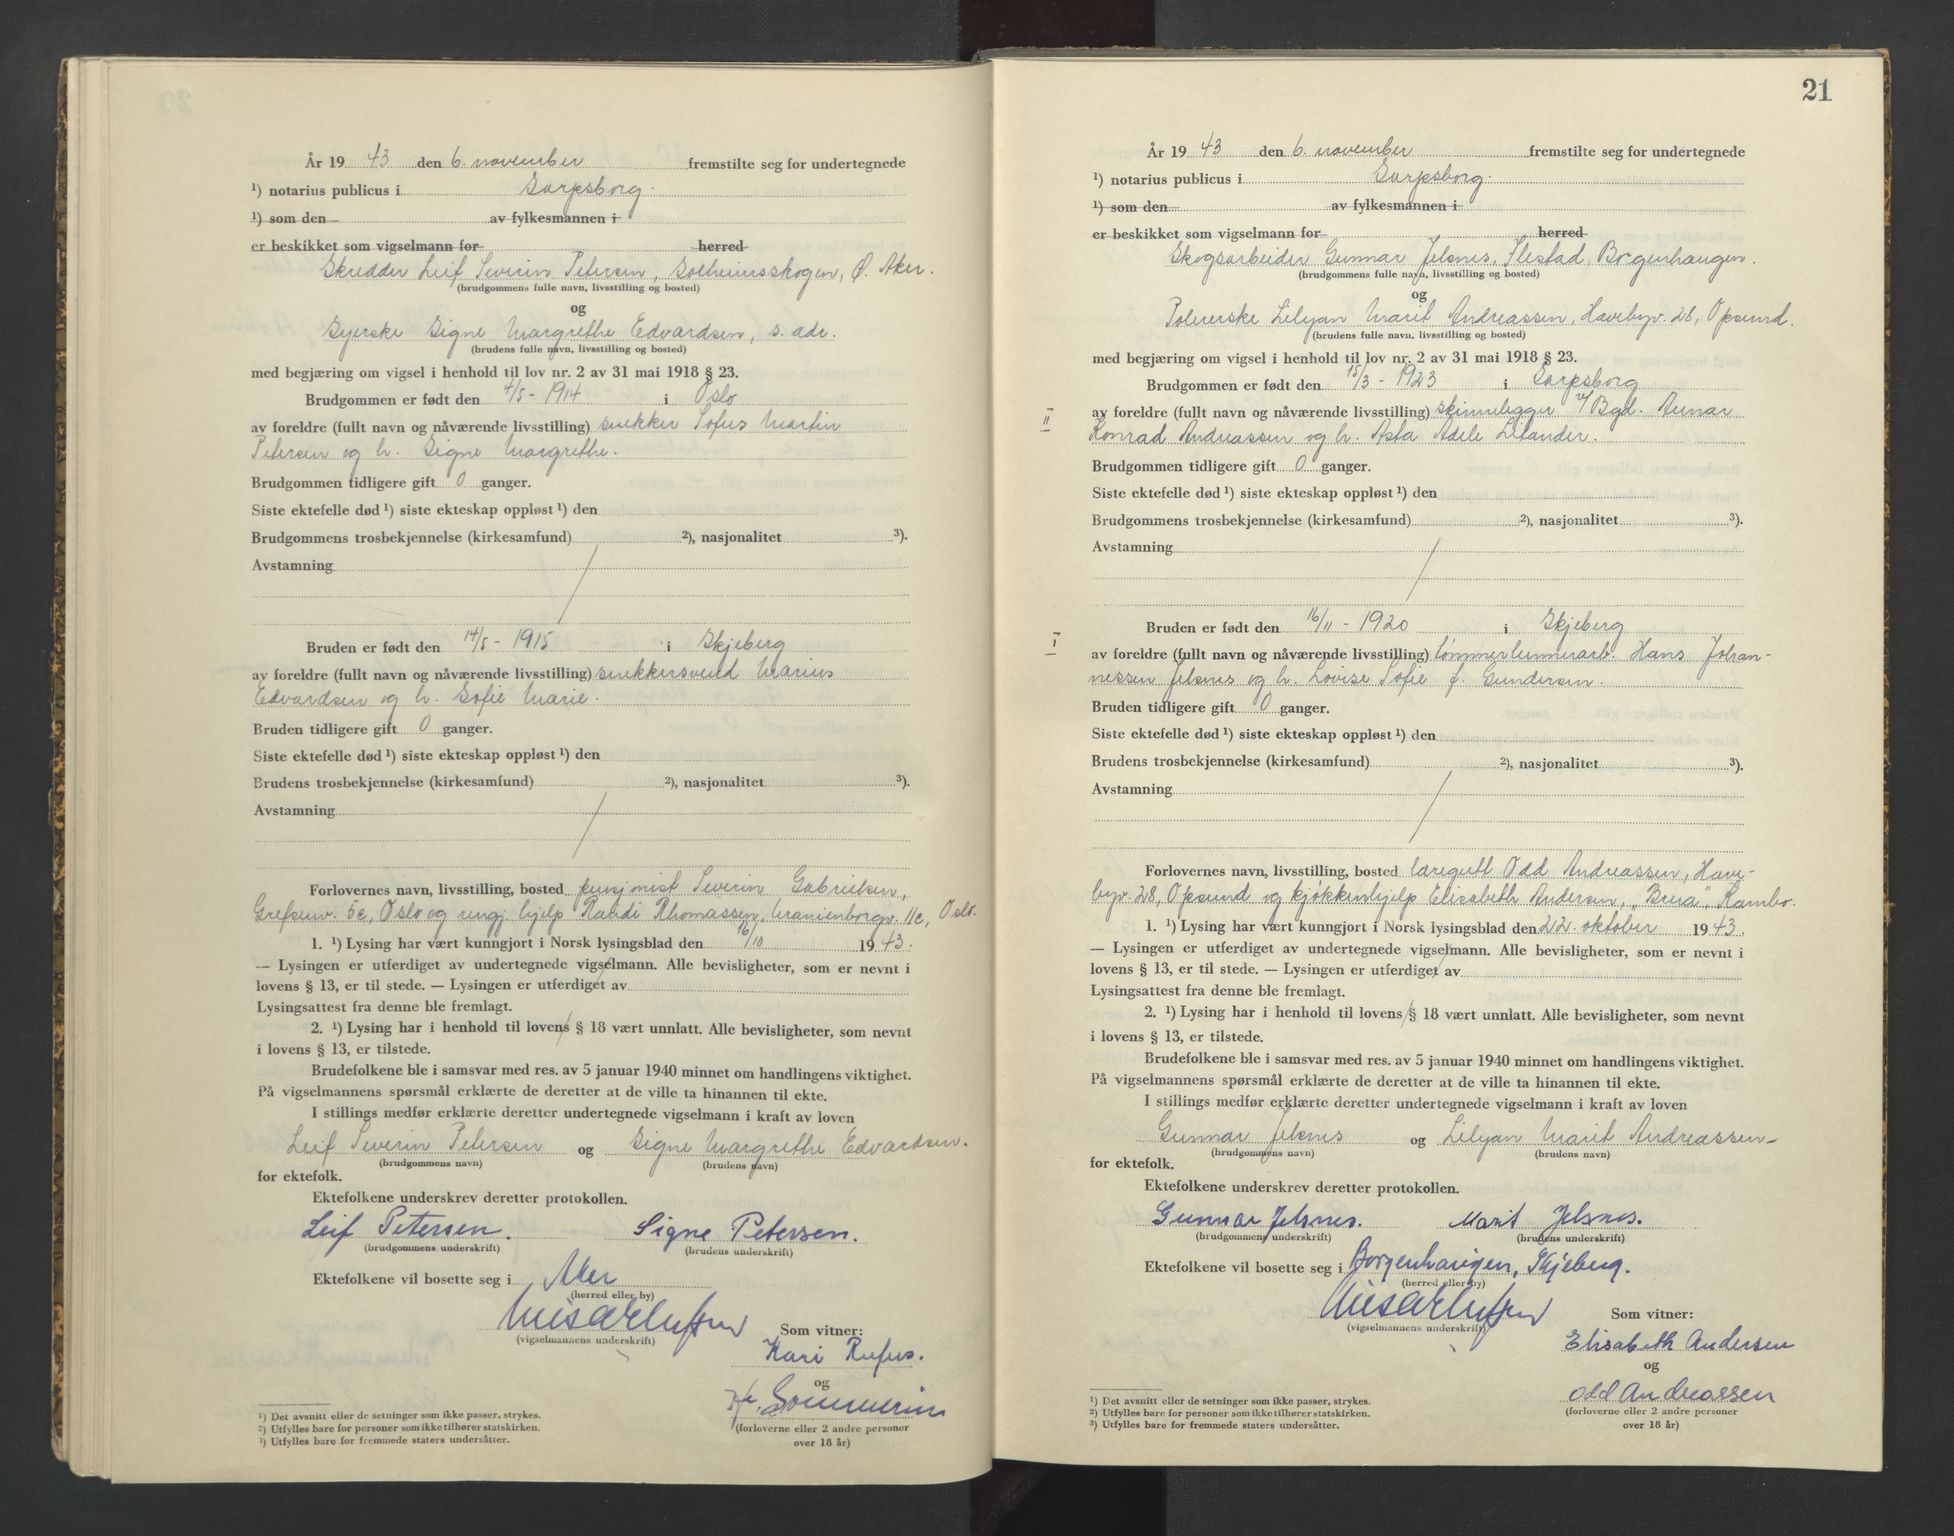 År 19 43 den 6. november fremstilte seg for undertegnede
¹) notarius publicus i Sarpsborg.
¹) som den av fylkesmannen i
er beskikket som vigselmann for herred
Skredder Leif Severin Petersen, Solheimsskogen, Ø. Aker.
(brudgommens fulle navn, livsstilling og bosted)
og
Syerske Signe Margrethe Edvardsen, s. adr.
(brudens fulle navn, livsstilling og bosted)
med begjæring om vigsel i henhold til lov nr. 2 av 31 mai 1918 § 23.
Brudgommen er født den 4/5 - 1914 i Oslo
av foreldre (fullt navn og nåværende livsstilling) snekker Sofus Martin
Petersen og h. Signe Margrethe.
Brudgommen tidligere gift 0 ganger.
Siste ektefelle død ¹) siste ekteskap oppløst ¹) den
Brudgommens trosbekjennelse (kirkesamfund) ²), nasjonalitet ³).
Avstamning
Bruden er født den 14/5 - 1915 i Skjeberg
av foreldre (fullt navn og nåværende livsstilling) snekkersvend Marius
Edvardsen og h. Sofie Marie.
Bruden tidligere gift 0 ganger.
Siste ektefelle død ¹) siste ekteskap oppløst ¹) den
Brudens trosbekjennelse (kirkesamfund) ²), nasjonalitet ³).
Avstamning
Forlovernes navn, livsstilling, bosted pensjonist Severin Gabrielsen,
Grefsenv. 5c, Oslo og rengj. hjelp Randi Thomassen, Uranienborgv. 11c, Oslo.
1. ¹) Lysing har vært kunngjort i Norsk lysingsblad den 16/10 1943.
— Lysingen er utferdiget av undertegnede vigselmann. Alle bevisligheter, som er nevnt i
lovens § 13, er til stede. — Lysingen er utferdiget av
Lysingsattest fra denne ble fremlagt.
2. ¹) Lysing har i henhold til lovens § 18 vært unnlatt. Alle bevisligheter, som nevnt
i lovens § 13, er tilstede.
Brudefolkene ble i samsvar med res. av 5 januar 1940 minnet om handlingens viktighet.
På vigselmannens spørsmål erklærte de deretter at de ville ta hinannen til ekte.
I stillings medfør erklærte deretter undertegnede vigselmann i kraft av loven
Leif Severin Petersen og Signe Margrethe Edvardsen.
(brudgommens navn) (brudens navn)
for ektefolk.
Ektefolkene underskrev deretter protokollen.
Leif Petersen. Signe Petersen.
(brudgommens underskrift) (brudens underskrift)
Ektefolkene vil bosette seg i Aker
(herred eller by)
(vigselmannens underskrift) Som vitner:
Kari Rufus.
og
(forloverne eller 2 andre personer
over 18 år)
¹) Det avsnitt eller de setninger som ikke passer, strykes.
²) Utfylles bare for personer som ikke tilhører statskirken.
³) Utfylles bare for fremmede staters undersåtter.
21
År 19 43 den 6. november fremstilte seg for undertegnede
¹) notarius publicus i Sarpsborg.
¹) som den av fylkesmannen i
er beskikket som vigselmann for herred
Skogsarbeider Gunnar Jelsnes, Ilestad, Borgenhaugen.
(brudgommens fulle navn, livsstilling og bosted)
og
Polererske Lilyan Marit Andreassen, Havebyv. 28, Opsund.
(brudens fulle navn, livsstilling og bosted)
med begjæring om vigsel i henhold til lov nr. 2 av 31 mai 1918 § 23.
Brudgommen er født den 15/3 - 1923 i Sarpsborg
II av foreldre (fullt navn og nåværende livsstilling) skinnelegger v/ Bgd. Aunar
Konrad Andreassen og h. Asta Adele Litander.
Brudgommen tidligere gift 0 ganger.
Siste ektefelle død ¹) siste ekteskap oppløst ¹) den
Brudgommens trosbekjennelse (kirkesamfund) ²), nasjonalitet ³).
Avstamning
Bruden er født den 16/11 - 1920 i Skjeberg
I av foreldre (fullt navn og nåværende livsstilling) tømmerlunnerarb. Hans Johan-
nessen Jelsnes og h. Lovise Sofie f. Gundersen.
Bruden tidligere gift 0 ganger.
Siste ektefelle død ¹) siste ekteskap oppløst ¹) den
Brudens trosbekjennelse (kirkesamfund) ²), nasjonalitet ³).
Avstamning
Forlovernes navn, livsstilling, bosted læregutt Odd Andreassen, Have-
byv. 28, Opsund og kjøkkenhjelp Elisabeth Andersen, „Breia", Kambo.
1. ¹) Lysing har vært kunngjort i Norsk lysingsblad den 22. oktober 1943.
— Lysingen er utferdiget av undertegnede vigselmann. Alle bevisligheter, som er nevnt i
lovens § 13, er til stede. — Lysingen er utferdiget av
Lysingsattest fra denne ble fremlagt.
2. ¹) Lysing har i henhold til lovens § 18 vært unnlatt. Alle bevisligheter, som nevnt
i lovens § 13, er tilstede.
Brudefolkene ble i samsvar med res. av 5 januar 1940 minnet om handlingens viktighet.
På vigselmannens spørsmål erklærte de deretter at de ville ta hinannen til ekte.
I stillings medfør erklærte deretter undertegnede vigselmann i kraft av loven
Gunnar Jelsnes og Lilyan Marit Andreassen
(brudgommens navn) (brudens navn)
for ektefolk.
Ektefolkene underskrev deretter protokollen.
Gunnar Jelsnes. Marit Jelsnes.
(brudgommens underskrift) (brudens underskrift)
Ektefolkene vil bosette seg i Borgenhaugen, Skjeberg.
(herred eller by)
(vigselmannens underskrift) Som vitner:
Elisabeth Andersen
og
Odd Andreassen
(forloverne eller 2 andre personer
over 18 år)
¹) Det avsnitt eller de setninger som ikke passer, strykes.
²) Utfylles bare for personer som ikke tilhører statskirken.
³) Utfylles bare for fremmede staters undersåtter.